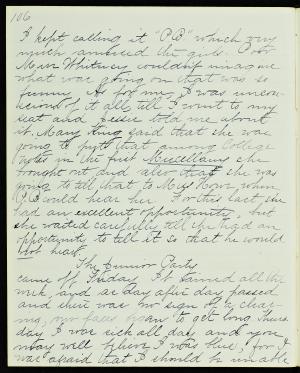 106
I kept calling it "P.B" which very
much amused the girls. Poor
Miss Whitney couldn't imagine
what was going on that was so
funny. As for me, I was uncon-
scious of it all till I went to my
seat and Jessie told me about
it. Mary King said that she was
going to put that among College
notes in the first Miscellany she
brought out and also that she was
going to tell that to Miss when
P.B would hear her. For this last she
had an excellent opportunity, but
she waited carefully till she had an
opportunity to tell it so that he would
not hear.
The Junior Party
came off Friday. It rained all the
week, and as day after day passed
and there was no sign of a clear-
ing, our faces began to get long. Thurs-
day I was sick all day, and you
may well believe I was blue, for I
was afraid that I should be unable